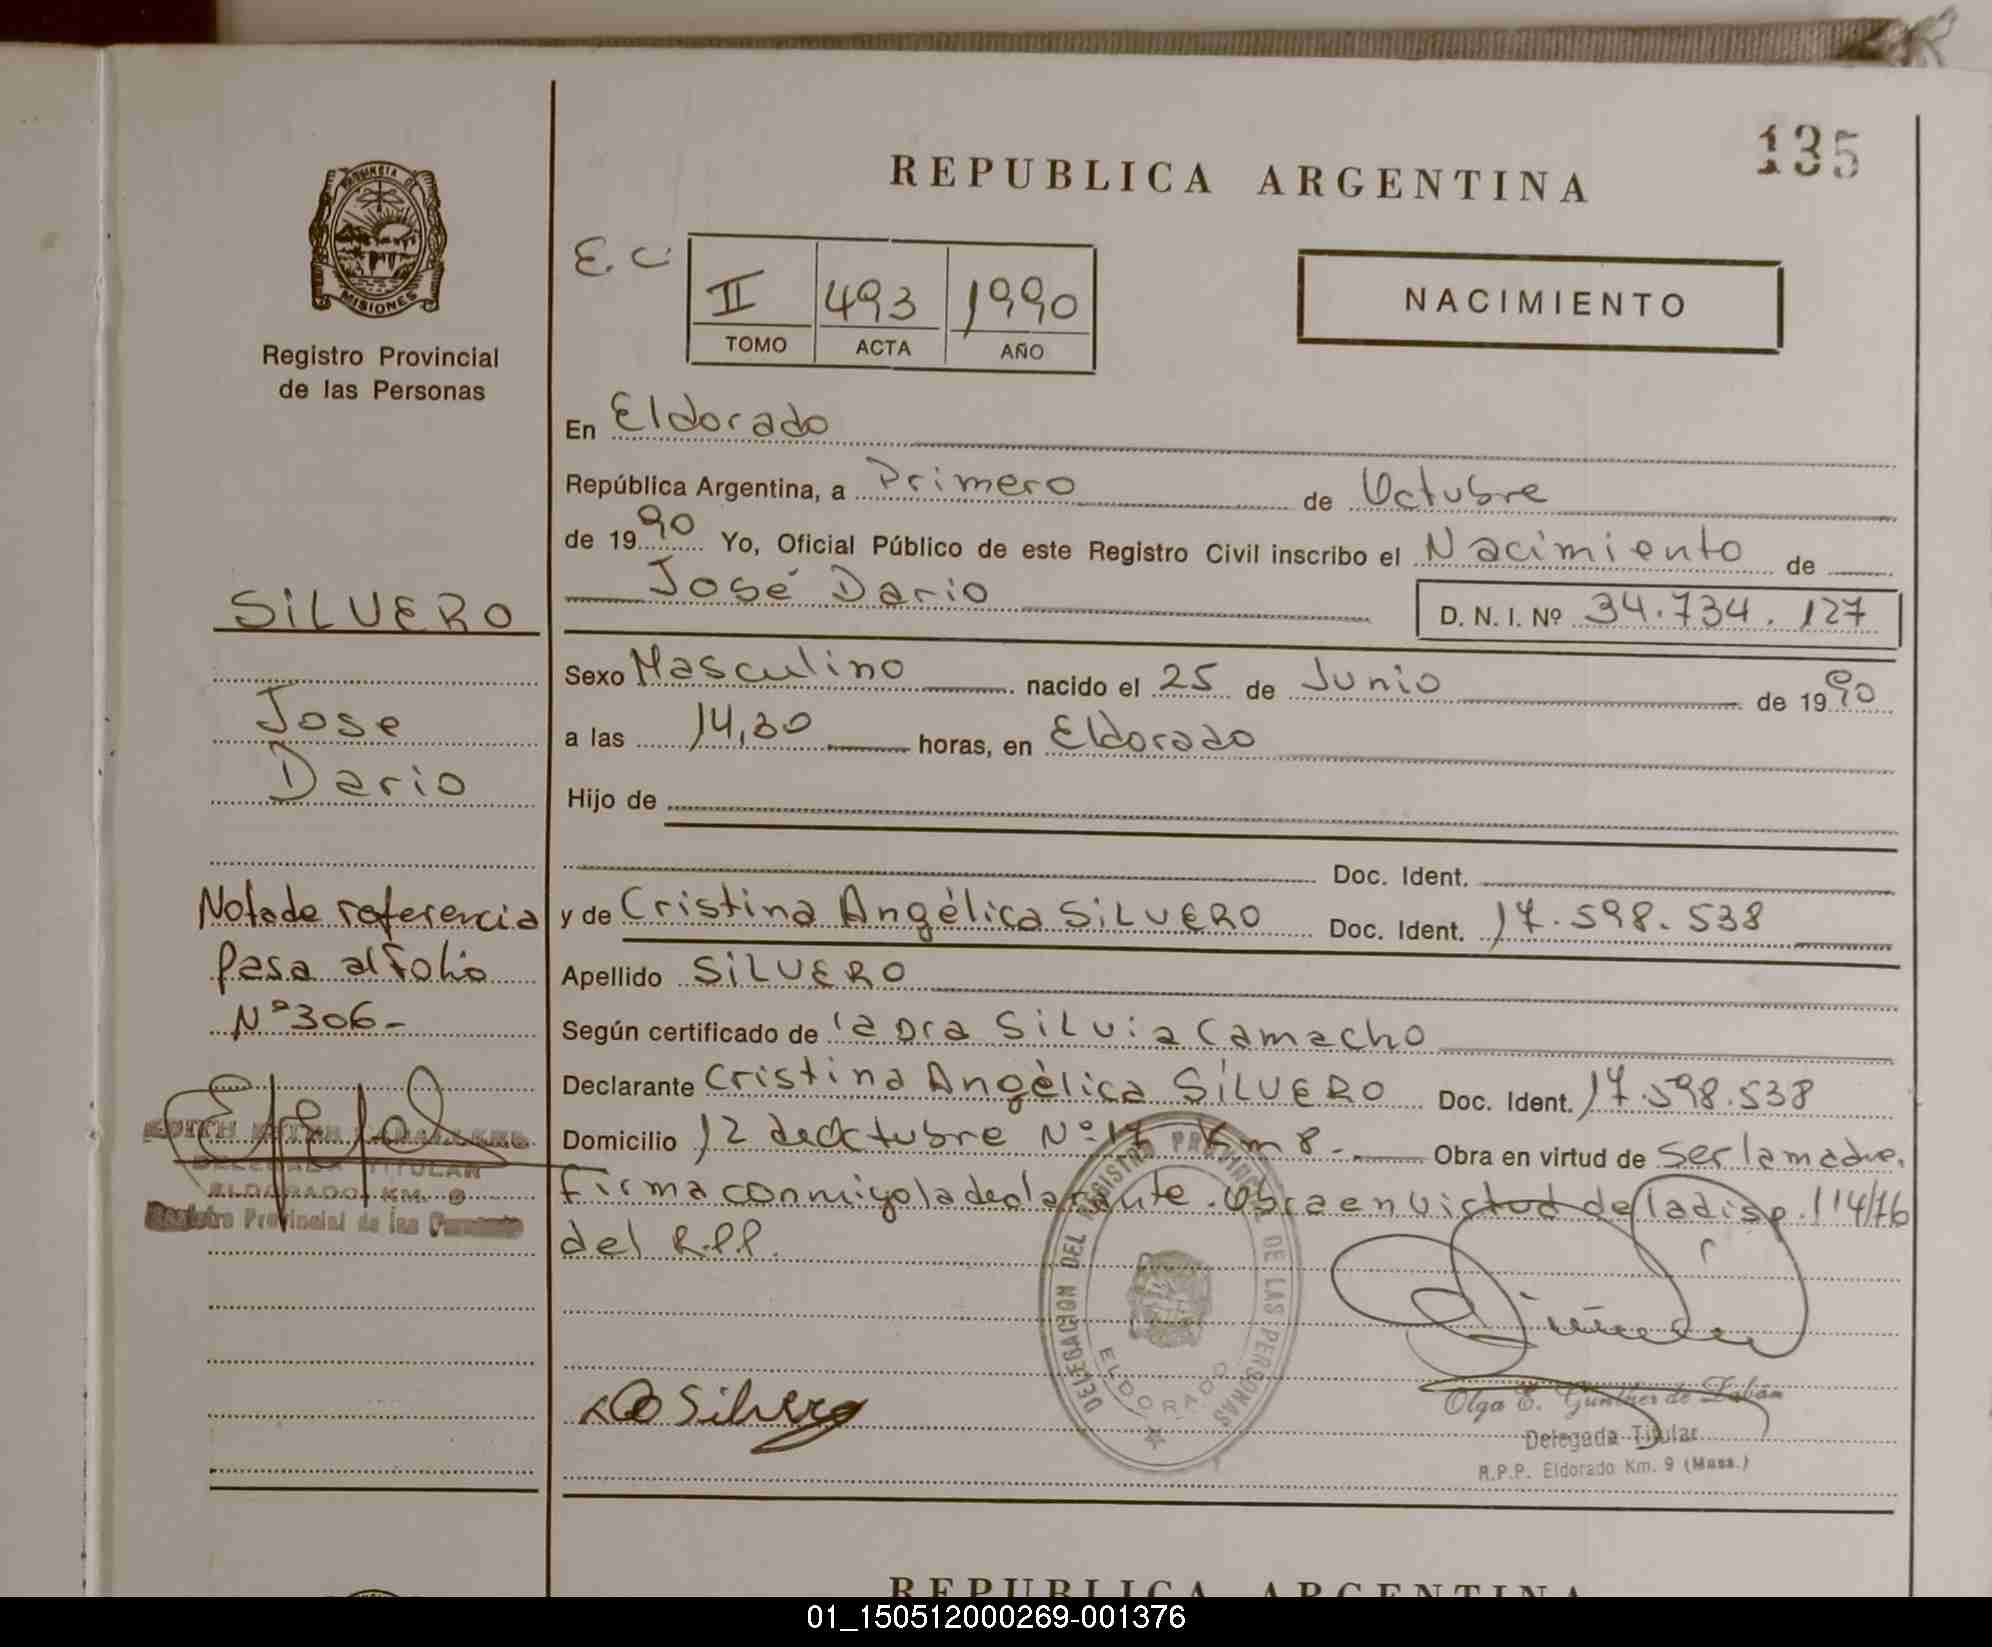 135
REPUBLICA ARGENTINA
PROVINCIA DE
MISIONES
Registro Provincial
de las Personas
E. C.
II 493 1990
TOMO ACTA AÑO
NACIMIENTO
En Eldorado
República Argentina, a Primero de Octubre
de 1990 Yo, Oficial Público de este Registro Civil inscribo el Nacimiento de
José Dario D. N. I. Nº 34.734.127
SILVERO
Jose
Dario
Sexo Masculino nacido el 25 de Junio de 1990
a las 14,30 horas, en Eldorado
Hijo de
Doc. Ident.
y de Cristina Angélica SILVERO Doc. Ident. 17.598.538
Apellido SILVERO
Según certificado de la Dra Silvia Camacho
Declarante Cristina Angélica SILVERO Doc. Ident. 17.598.538
Domicilio 12 de Octubre Nº 17 Km 8.- Obra en virtud de ser la madre.
Firma conmigo la declarante. Obra en virtud de la disp. 114/76
del R.P.P.
Nota de referencia
pasa al folio
Nº 306-
EDITH
DELEGADA TITULAR
ELDORADO KM. 9
Registro Provincial de las Personas
DELEGACION DEL REGISTRO PROVINCIAL DE LAS PERSONAS
ELDORADO
Silvero
Olga E. Gunther de
Delegada Titular
R.P.P. Eldorado Km. 9 (Mnes.)
REPUBLICA ARGENTINA
01_150512000269-001376